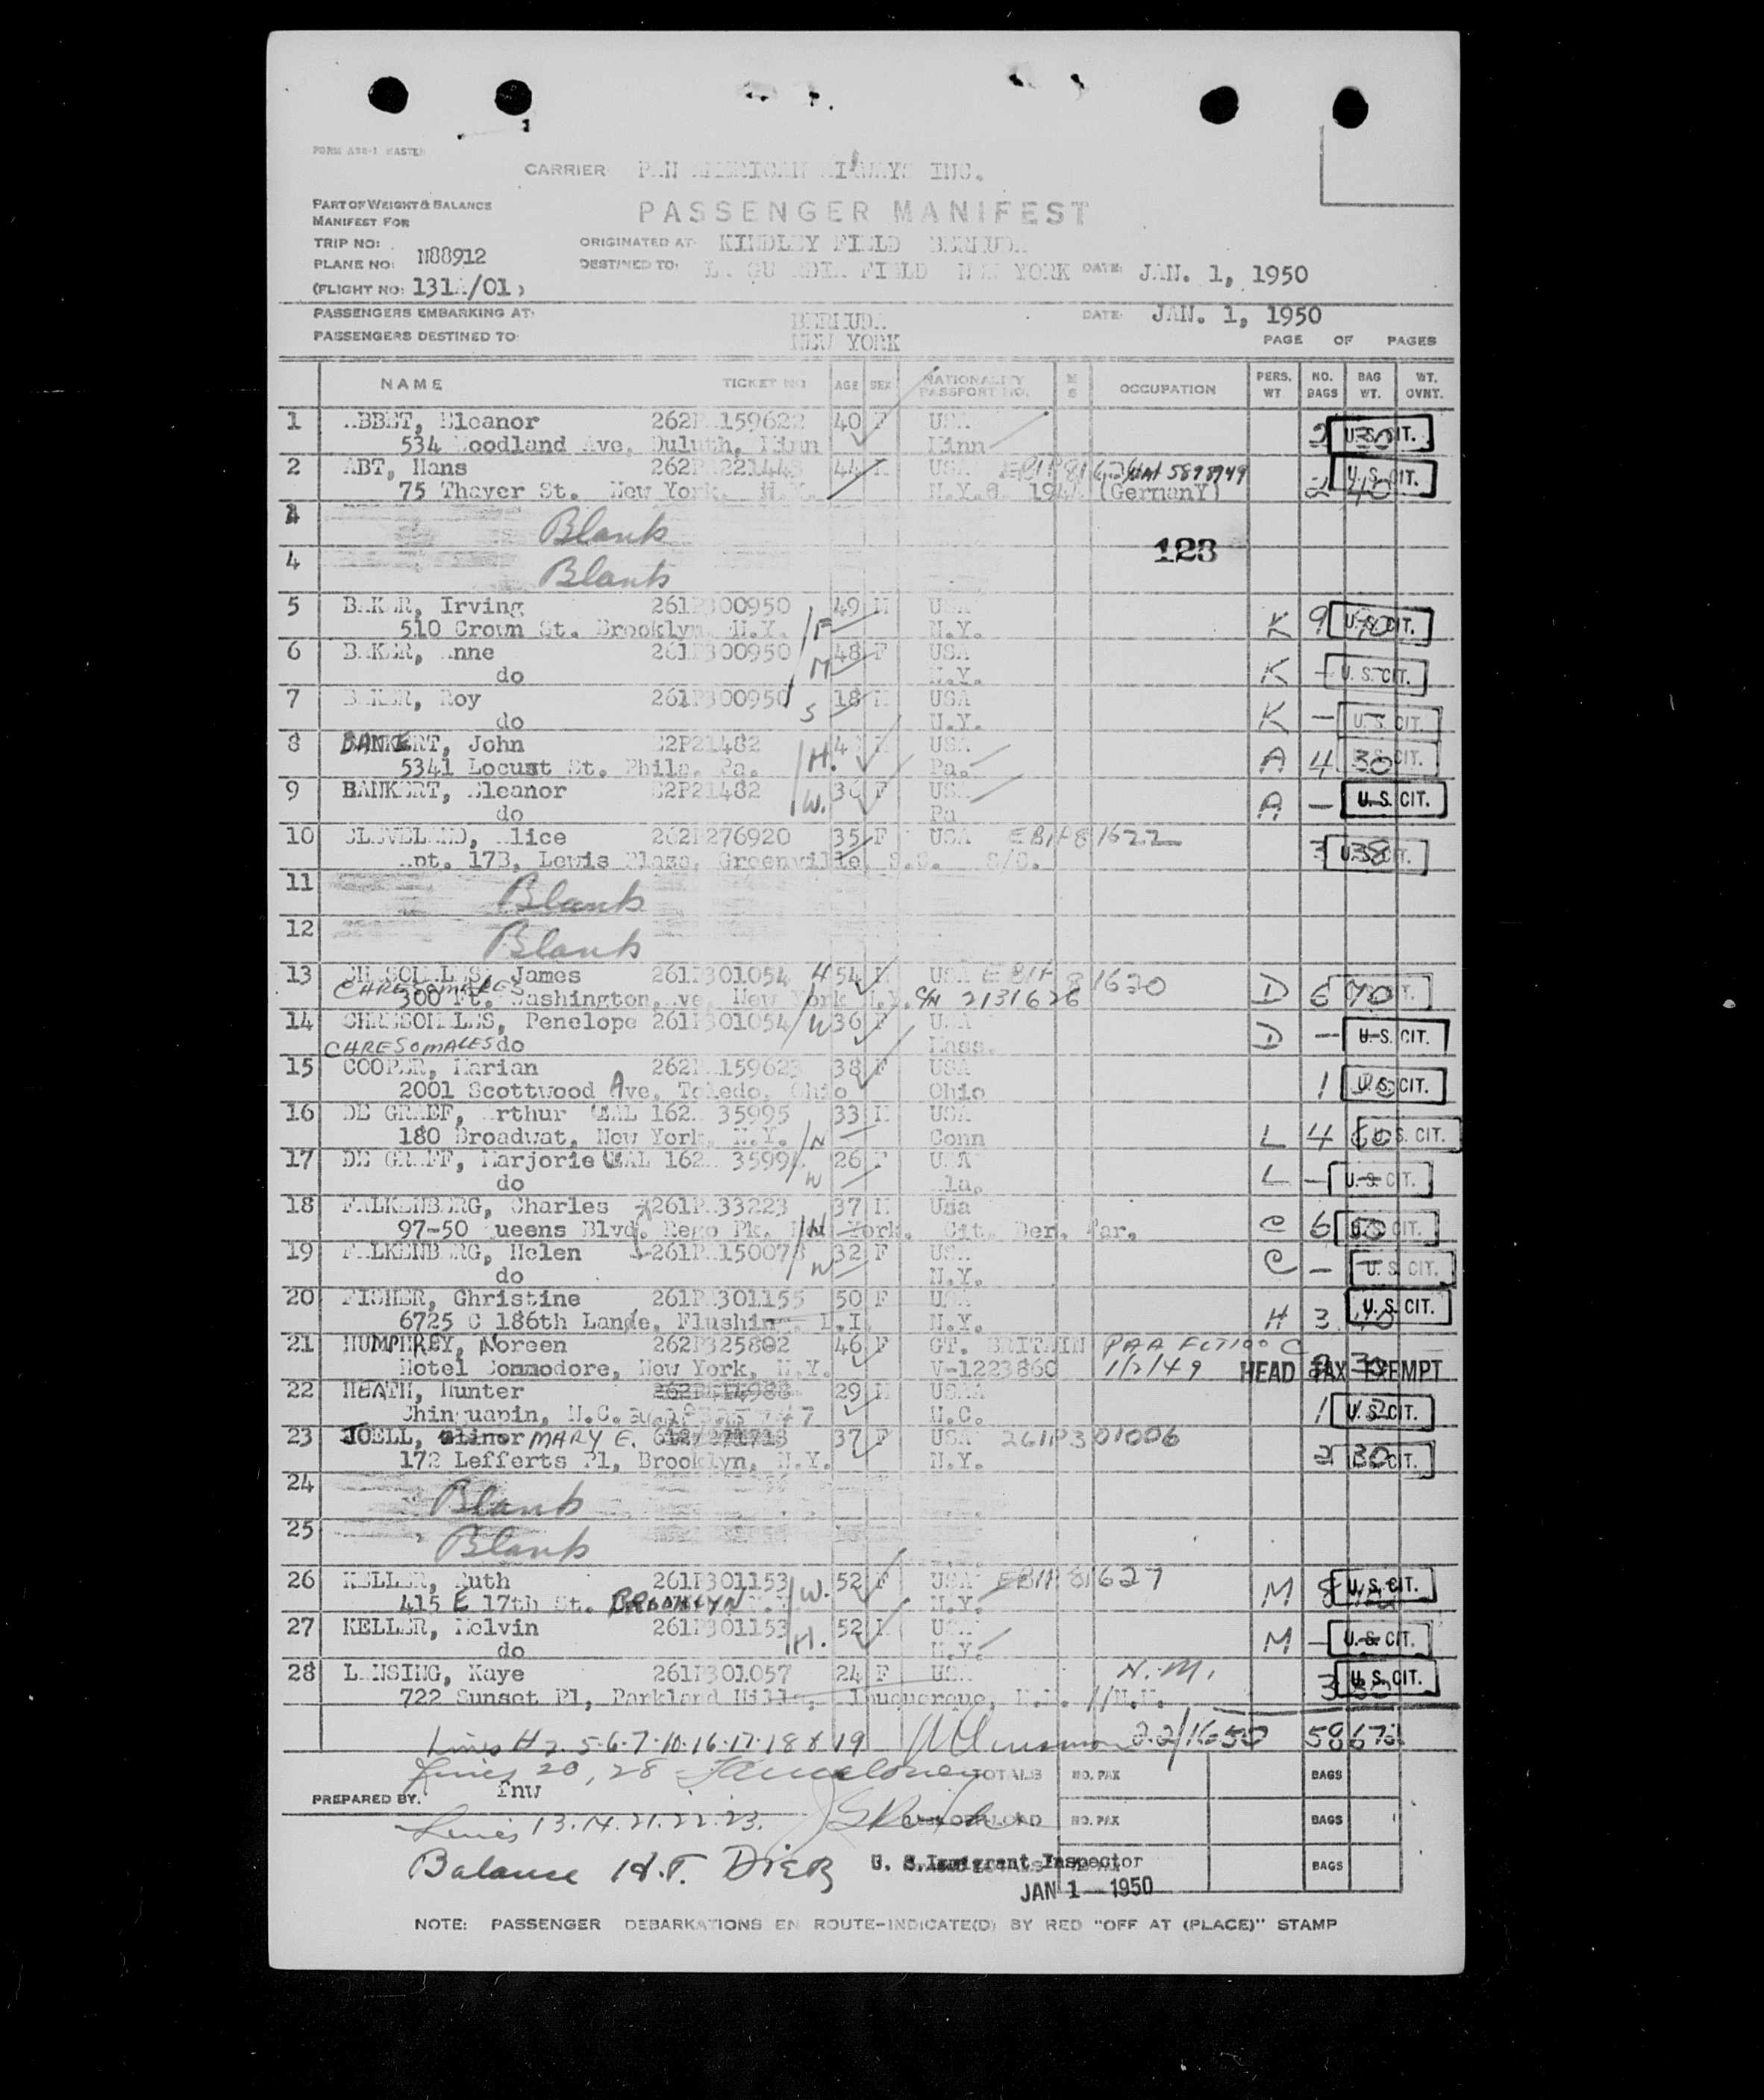 FORM ABS-1 MASTER
CARRIER PAN AMERICAN AIRWAYS INC.
PART OF WEIGHT & BALANCE
MANIFEST FOR
PASSENGER MANIFEST
TRIP NO:
PLANE NO: N88912
(FLIGHT NO: 131A/01)
ORIGINATED AT: KINDLEY FIELD BERMUDA
DESTINED TO: LA GUARDIA FIELD NEW YORK DATE: JAN. 1, 1950
PASSENGERS EMBARKING AT: BERMUDA DATE: JAN. 1, 1950
PASSENGERS DESTINED TO: NEW YORK PAGE OF PAGES
NAME TICKET NO AGE SEX NATIONALITY PASSPORT NO. M S OCCUPATION PERS. WT. NO. BAGS BAG WT. WT. OVNT.
1 ABBET, Eleanor 262PA159622 40 F USA 2 U.S. CIT.
534 Woodland Ave, Duluth, Minn Minn
2 ABT, Hans 44 M USA 5898949 2 40 U.S. CIT.
75 Thayer St. New York, N.Y. (GermanY)
Blank
123
4 Blank
5 BAKER, Irving 261P300950 49 M USA K 9 U.S. CIT.
510 Crown St. Brooklyn, N.Y. /F N.Y.
6 BAKER, Anne 261P300950 48 F USA K - U.S. CIT.
do /M N.Y.
7 BAKER, Roy 261P300950 18 M USA K - U.S. CIT.
do S N.Y.
8 BANKERT, John 82P21482 M USA A 4 30 U.S. CIT.
5341 Locust St. Phila, Pa. /H. Pa.
9 BANKERT, Eleanor 82P21482 36 F USA A - U.S. CIT.
do /W. Pa
10 CLEVELAND, Alice 262P276920 35 F USA 81622 3 38 U.S. CIT.
Apt. 17B, Lewis Plaza, Greenville, S.C. S/C.
11 Blank
12 Blank
13 James 261P301054 H 54 M USA 81620 D 6 70
CHRESOMALES
300 Ft. Washington Ave, New York N.Y. C/N 2131626
14 Penelope 261P301054 /W 36 F USA D - U.S. CIT.
CHRESOMALES do Mass.
15 COOPER, Marian 262PA159623 38 F USA 1 U.S. CIT.
2001 Scottwood Ave, Toledo, Ohio Ohio
16 DE GRAEF, Arthur 162A 35995 33 M USA L 4 60 U.S. CIT.
180 Broadwat, New York, N.Y. Conn
17 DE GRAEF, Marjorie 26 F USA L - U.S. CIT.
do W Ala.
18 FALKENBERG, Charles 261PA33223 37 M Usa C 6 50 U.S. CIT.
97-50 Queens Blvd. Rego Pk. New York. Cit. Der. Par.
19 FALKENBERG, Helen 32 F USA C - U.S. CIT.
do W N.Y.
20 FISHER, Ghristine 261PA301155 50 F USA H 3 40 U.S. CIT.
6725 C 186th Lande, Flushing, L.I. N.Y.
21 HUMPHREY, Noreen 262P325802 46 F GT. BRITAIN PAA
Hotel Commodore, New York, N.Y. V-1223860 1/2/49 HEAD TAX EXEMPT
22 HEATH, Hunter 29 M 1 U.S. CIT.
Chinquapin, N.C. N.C.
23 JOELL, Elinor MARY E. 37 F USA 261P301006 2 30 U.S. CIT.
172 Lefferts Pl, Brooklyn, N.Y. N.Y.
24 Blank
25 Blank
26 KELLER, Ruth 261P301153 /W. 52 F USA 81627 M 8 U.S. CIT.
415 E 17th St. BROOKLYN N.Y.
27 KELLER, Melvin 261P301153 /H. 52 M USA M - U.S. CIT.
do N.Y.
28 LANSING, Kaye 261P301057 24 F USA N.M. 3 U.S. CIT.
722 Sunset Pl, Parkland Hills, Albuquerque, N.M. //N.M.
Lines # 2. 5-6-7-10-16-17-18 & 19 22/1650 58
Lines 20, 28 TOTALS NO. PAX BAGS
PREPARED BY. fnw
Lines 13.14.21.22.23. NO. PAX BAGS
Balance H.T. DIER U. S. Immigrant Inspector BAGS
JAN 1 - 1950
NOTE: PASSENGER DEBARKATIONS EN ROUTE-INDICATE(D) BY RED "OFF AT (PLACE)" STAMP